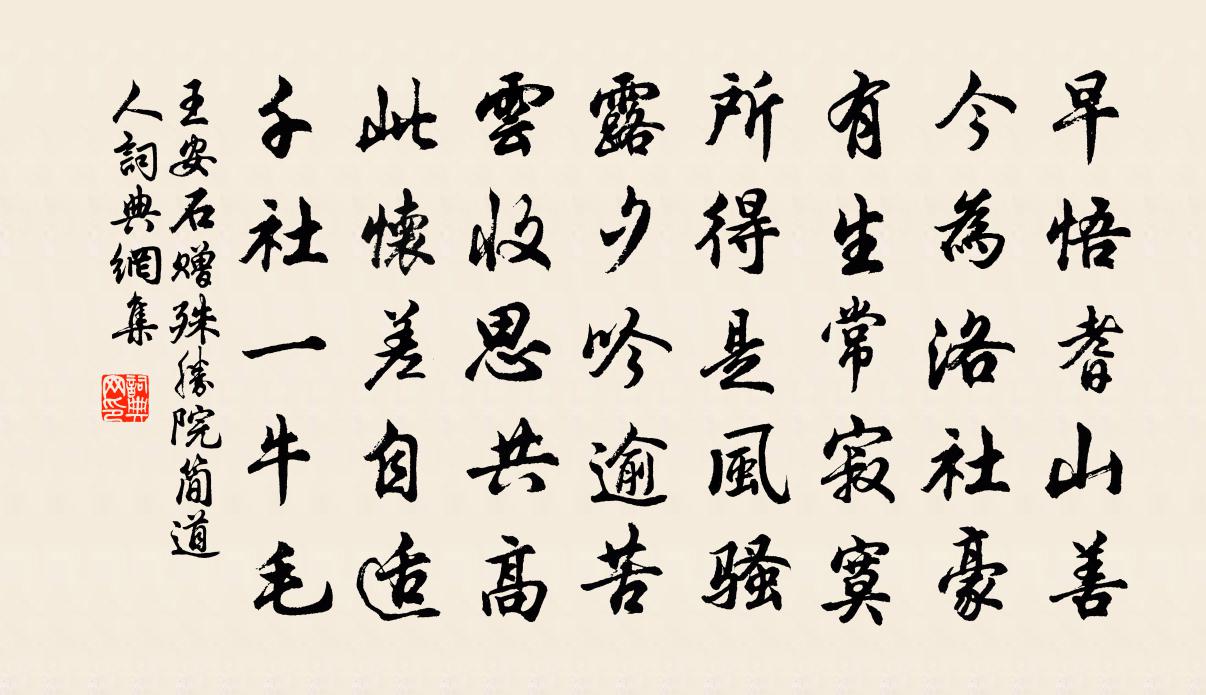 早悟耆山善
今為洛社豪
有生常寂寞
所得是風騷
露夕吟逾苦
雲收思共高
此懷差自适
千社一牛毛
王安石赠殊勝院简道
人詞典網集
詞典
网印